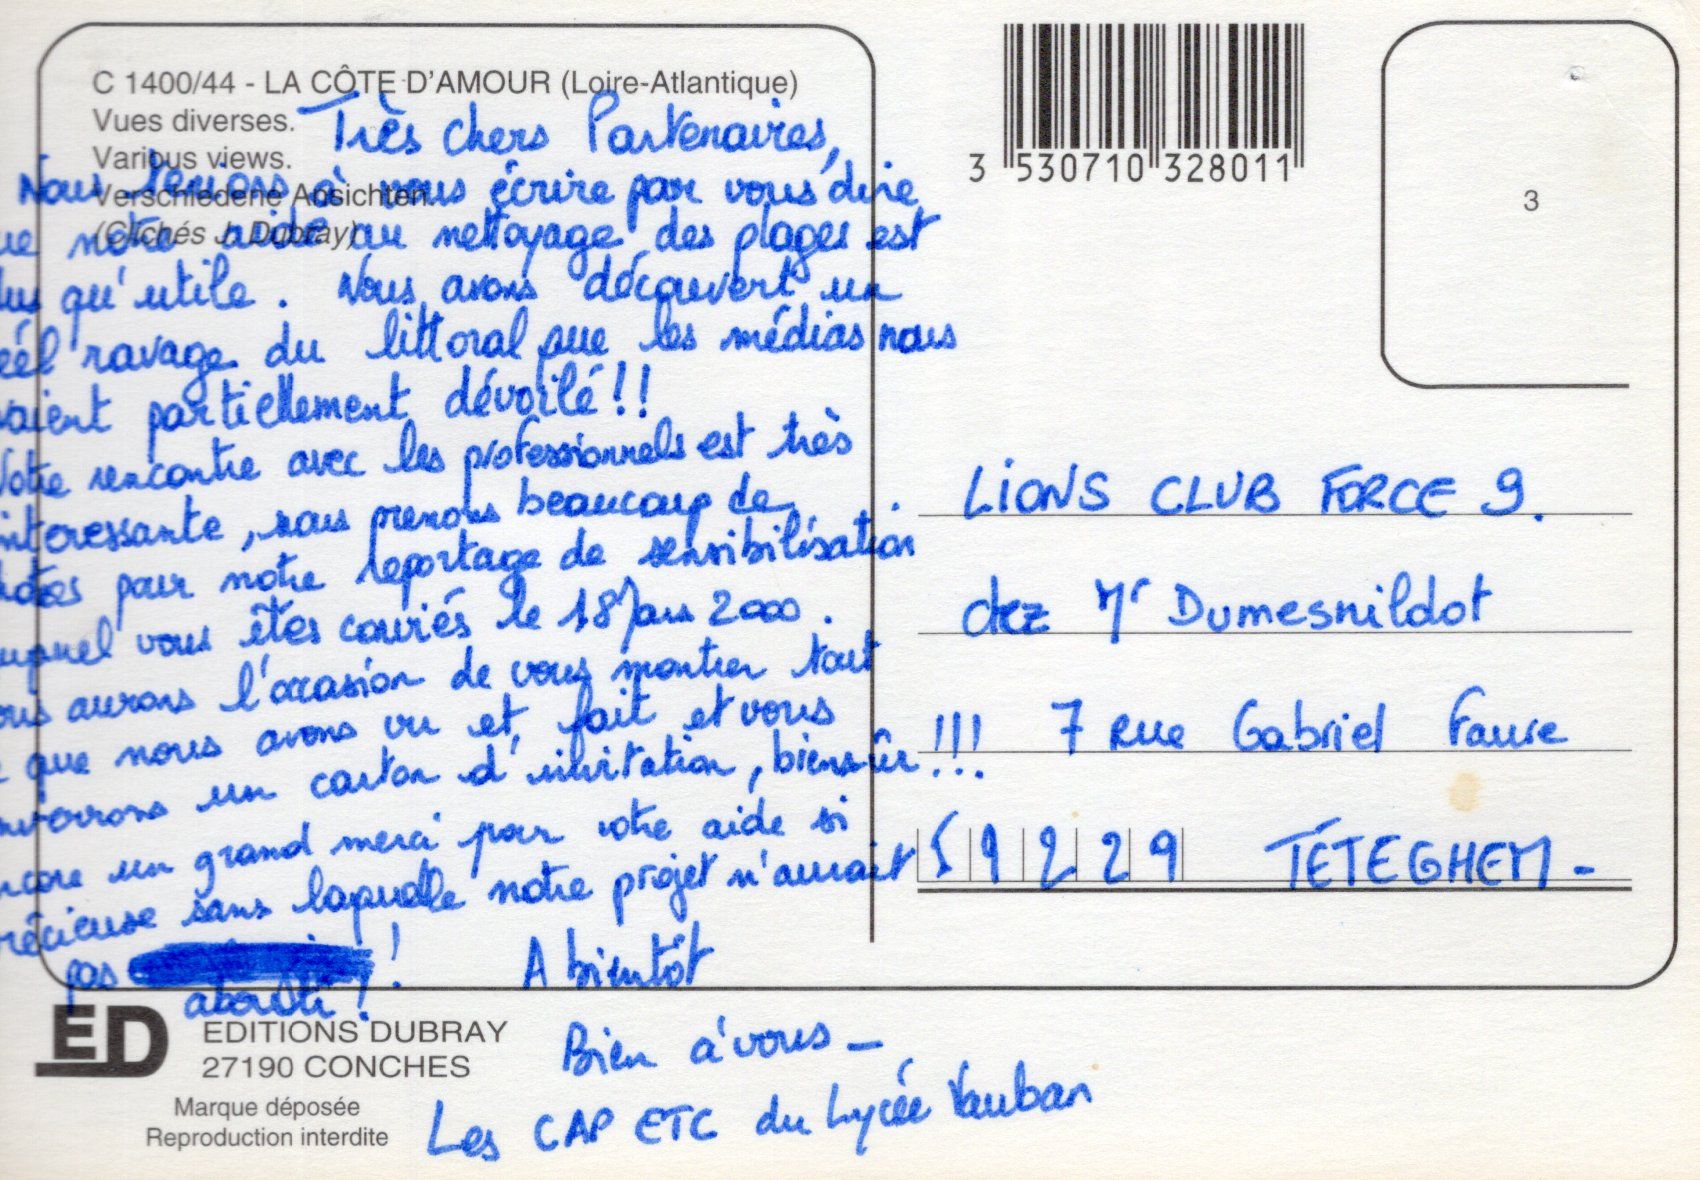 C 1400/44 - LA CÔTE D'AMOUR (Loire-Atlantique)
Vues diverses.
Various views.
Verschiedene Ansichten.
(Clichés J. Dubray)
Très chers Partenaires,
Nous tenions à vous écrire par vous dire
ue notre aide au nettoyage des plages est
lus qu'utile. Nous avons découvert un
éel ravage du littoral que les médias nous
vaient partiellement dévoilé!!
Notre rencontre avec les professionnels est très
ntéressante, nous prenons beaucoup de
hotos pour notre reportage de sensibilisation.
uquel vous êtes conviés le 18 Jan 2000.
ous aurons l'occasion de vous montrer tout
e que nous avons vu et fait et vous
nverrons un carton d'invitation, biensûr!!!
ncore un grand merci pour votre aide si
récieuse sans laquelle notre projet n'aurait
pas !
abouti!
A bientôt
Bien à vous -
Les CAP ETC du Lycée Vauban
3 530710 328011
3
LIONS CLUB FORCE 9.
chez Mr Dumesnildot
7 Rue Gabriel Faure
59229 TÉTEGHEM -
ED
EDITIONS DUBRAY
27190 CONCHES
Marque déposée
Reproduction interdite